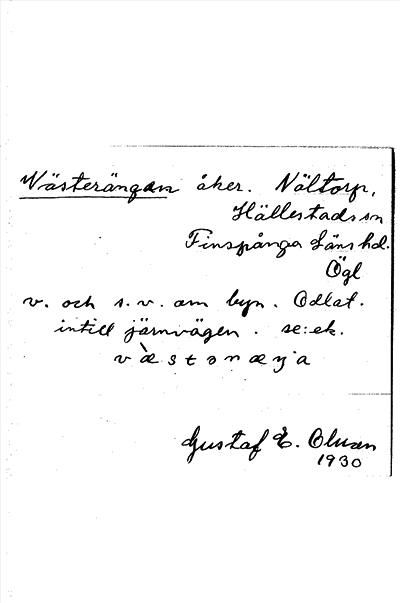 Västerängen åker. Nältorp,
Hällestads sn
Finspånga Läns hd.
Ögl
v. och s.v. om byn. Odlat.
intill järnvägen. se: ek.
v æ̀ s t ə r æ ŋ a
Gustaf E. Olsson
1930